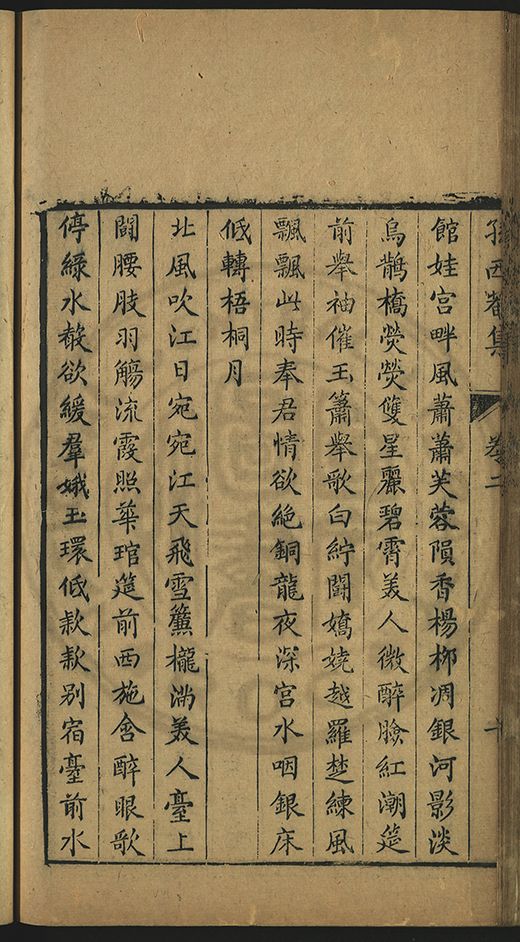 孫西菴集 卷二 十
館娃宮畔風蕭蕭芙蓉隕香楊柳凋銀河影淡
烏鵲橋熒熒雙星麗碧霄美人微醉臉紅潮筵
前舉袖催玉簫舉歌白紵鬪嬌嬈越羅楚練風
飄飄此時奉君情欲絶銅龍夜深宮水咽銀床
低轉梧桐月
北風吹江日宛宛江天飛雪簾櫳滿美人臺上
鬪腰肢羽觴流霞照華琯筵前西施含醉眼歌
停綠水聲欲緩羣娥玉環低款款別宿臺前水